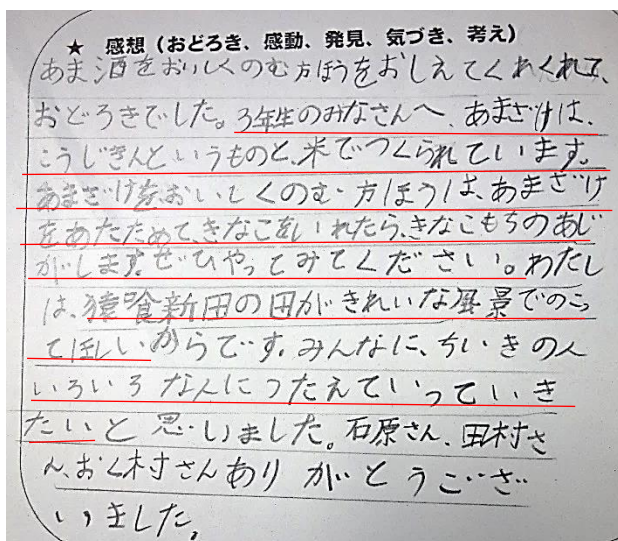 ★ 感想（おどろき、感動、発見、気づき、考え）
あま酒をおいしくのむ方ほうをおしえてくれくれて、
おどろきでした。3年生のみなさんへ、あまざけは、
こうじきんというものと、米でつくられています。
あまざけを、おいしくのむ方ほうは、あまざけ
をあたためて、きなこをいれたら、きなこもちのあじ
がします。ぜひやってみてください。わたし
は、猿喰新田の田がきれいな風景でのこっ
てほしいからです。みんなに、ちいきの人
いろいろな人につたえていっていき
たいと思いました。石原さん、田村さ
ん、おく村さんありがとうござ
いました。